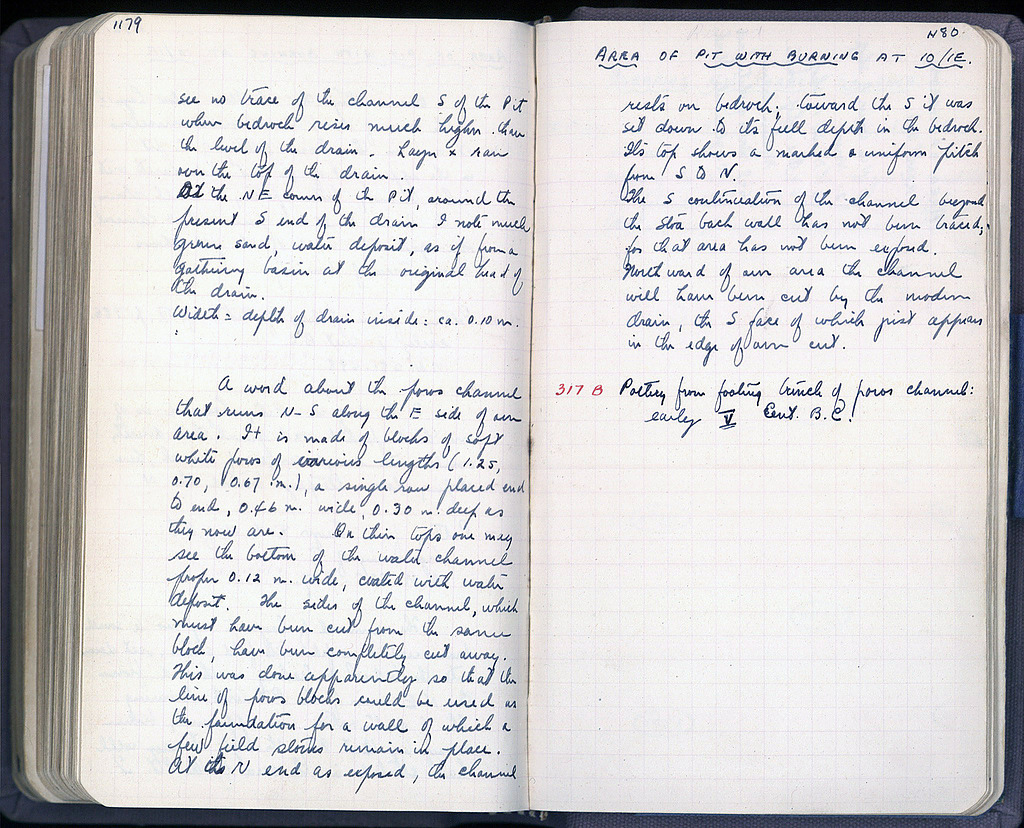 1179
see no trace of the channel S of the Pit
when bedrock rises much higher than
the level of the drain. Layer x ran
over the top of the drain.
At the NE corner of the Pit, around the
present S end of the drain I note much
green sand, water deposit, as if from a
gathering basin at the original head of
the drain.
Width = depth of drain inside: ca. 0.10 m.
A word about the poros channel
that runs N-S along the E side of our
area. It is made of blocks of soft
white poros of various lengths (1.25,
0.70, 0.67 m.), a single row placed end
to end, 0.46 m. wide, 0.30 m. deep as
they now are. On their tops one may
see the bottom of the water channel
proper 0.12 m. wide, coated with water
deposit. The sides of the channel, which
must have been cut from the same
block, have been completely cut away.
This was done apparently so that the
line of poros blocks could be used as
the foundation for a wall of which a
few field stones remain in place.
At its N end as exposed, the channel
1180
AREA OF PIT WITH BURNING AT 10/IE.
rests on bedrock; toward the S it was
set down to its full depth in the bedrock.
Its top shows a marked & uniform pitch
from S to N.
The S continuation of the channel beyond
the Stoa back wall has not been traced,
for that area has not been exposed.
Northward of our area the channel
will have been cut by the modern
drain, the S face of which just appears
in the edge of our cut.
317 B Pottery from footing trench of poros channel:
early V Cent. B.C.